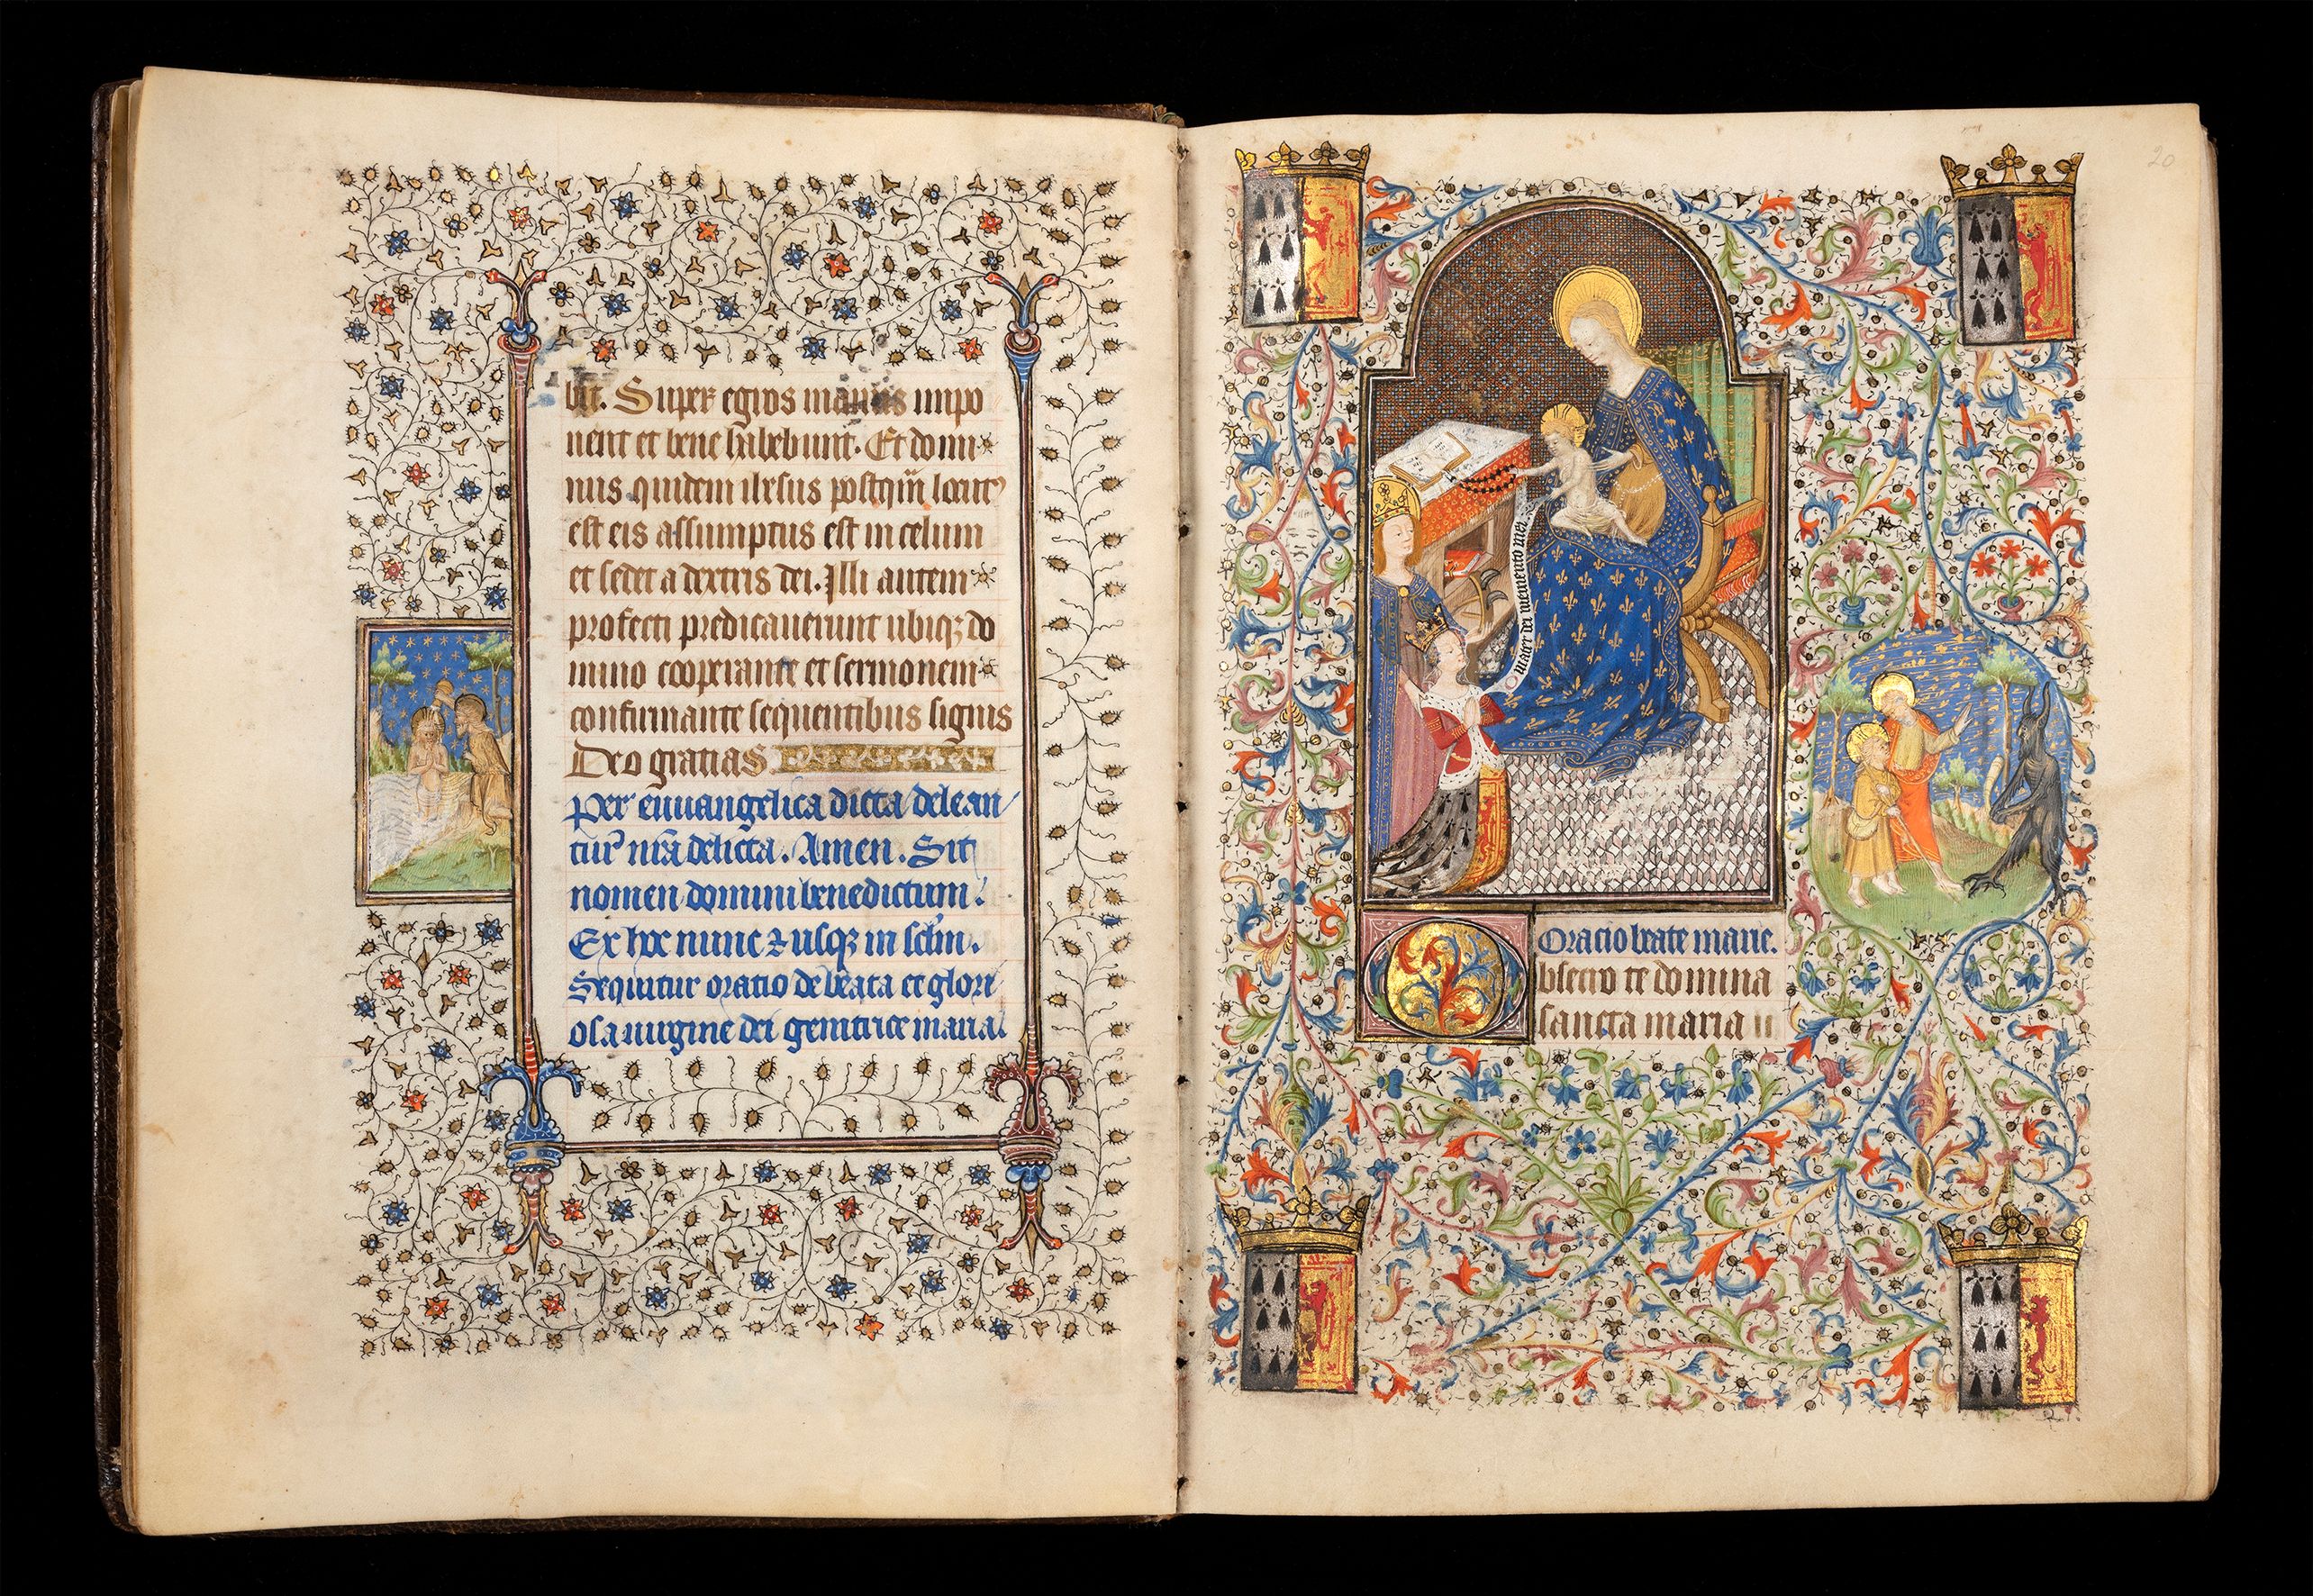 bit. Super egros manus impo
nent et bene habebunt. Et domi
nus quidem ihesus postq̄m locut᾽
est eis assumptus est in celum
et sedet a dextris dei. Illi autem
profecti predicauerunt ubiqꝫ do
mino cooperante et sermonem
confirmante sequentibus signis
Deo gratias
Per euuangelica dicta delean
tur nr̄a delicta. Amen. Sit
nomen domini benedictum.
Ex hoc nunc ⁊ usqꝫ in sclm̄.
Sequitur oratio de beata et glori
osa uirgine dei genitrice maria.
20
Mater dei memento mei
Oracio beate marie.
Obsecro te domina
sancta maria